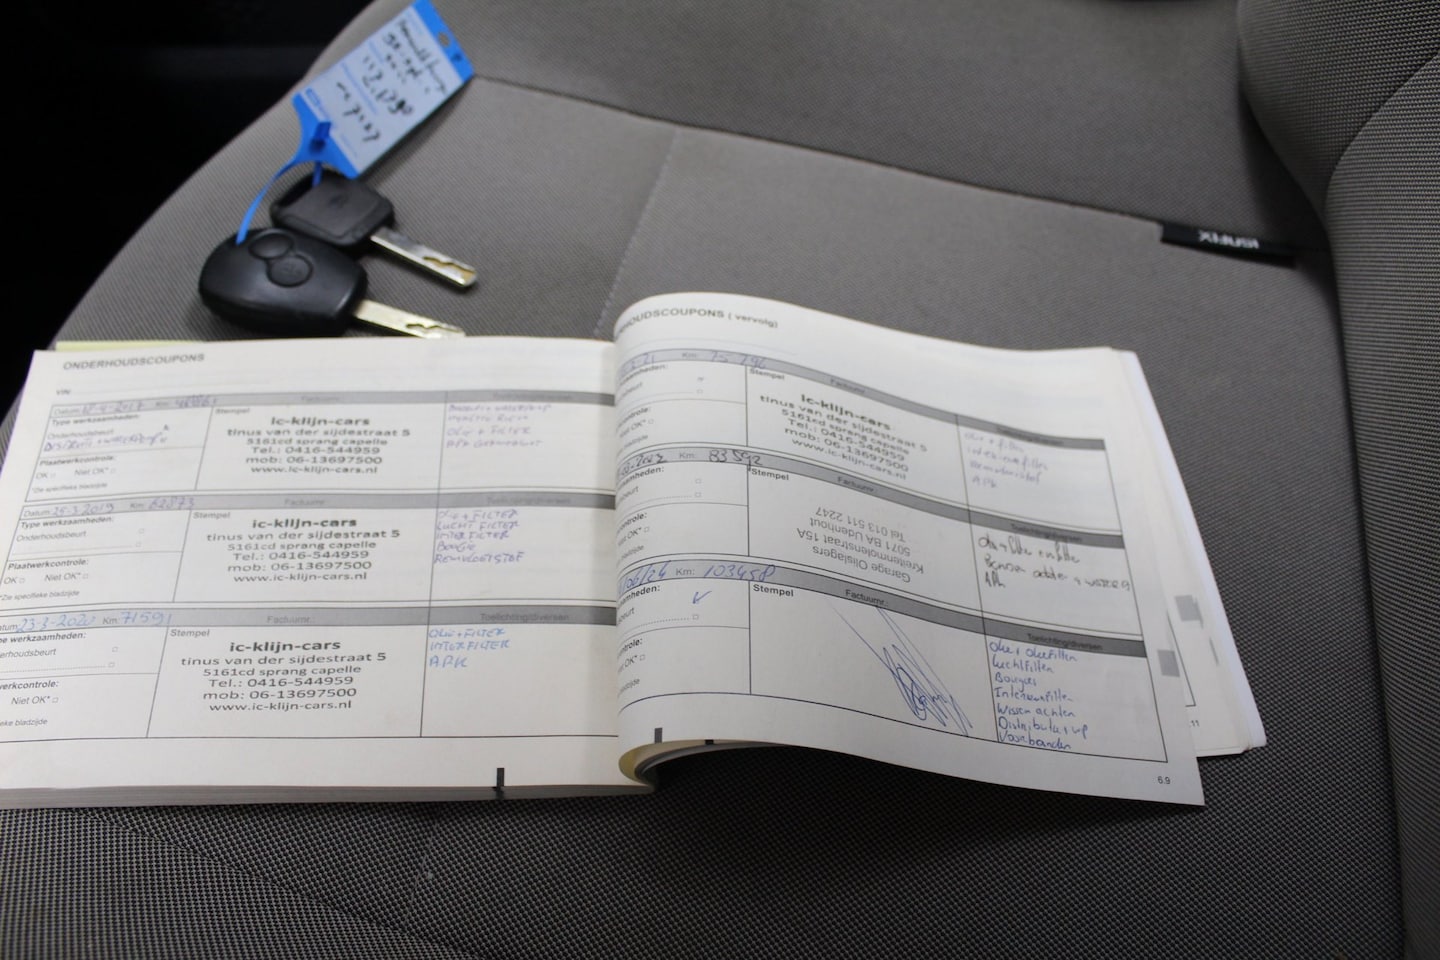 ONDERHOUDSCOUPONS
VIN
Datum: 2017 Km:
Type werkzaamheden:
Onderhoudsbeurt
Plaatwerkcontrole:
OK □ Niet OK* □
*Zie specifieke bladzijde
Stempel
Factuurnr.:
ic-klijn-cars
tinus van der sijdestraat 5
5161cd sprang capelle
Tel.: 0416-544959
mob: 06-13697500
www.ic-klijn-cars.nl
Toelichting/diversen
OLIE + FILTER
Datum: 25-3-2019 Km: 62873
Type werkzaamheden:
Onderhoudsbeurt □
Plaatwerkcontrole:
OK □ Niet OK* □
*Zie specifieke bladzijde
Stempel
Factuurnr.:
ic-klijn-cars
tinus van der sijdestraat 5
5161cd sprang capelle
Tel.: 0416-544959
mob: 06-13697500
www.ic-klijn-cars.nl
Toelichting/diversen
OLIE + FILTER
LUCHT FILTER
INTERFILTER
Bougie
REMVLOEISTOF
atum: 23-3-2020 Km: 71591
pe werkzaamheden:
erhoudsbeurt □
werkcontrole:
Niet OK* □
fieke bladzijde
Stempel
Factuurnr.:
ic-klijn-cars
tinus van der sijdestraat 5
5161cd sprang capelle
Tel.: 0416-544959
mob: 06-13697500
www.ic-klijn-cars.nl
Toelichting/diversen
OLIE + FILTER
INTERFILTER
APK
RHOUDSCOUPONS ( vervolg)
21 Km: 75196
mheden:
beurt □
controle:
Niet OK* □
bladzijde
Stempel
Factuurnr.:
ic-klijn-cars
tinus van der sijdestraat 5
5161cd sprang capelle
Tel.: 0416-544959
mob: 06-13697500
www.ic-klijn-cars.nl
Toelichting/diversen
olie + filter
interieurfilter
remvloeistof
APK
Km: 83592
amheden:
beurt □
controle:
Niet OK* □
bladzijde
Stempel
Factuurnr.:
Garage Olislagers
Kreitenmolenstraat 15A
5071 BA Udenhout
Tel 013 511 2247
Toelichting/diversen
APK
/06/24 Km: 103458
amheden:
beurt □
controle:
Niet OK* □
bladzijde
Stempel
Factuurnr.:
Toelichting/diversen
Olie + Oliefilter
Luchtfilter
Bougies
Interieurfilter
Wissers achter
Distributie + wp
Voorbanden
6.9
11